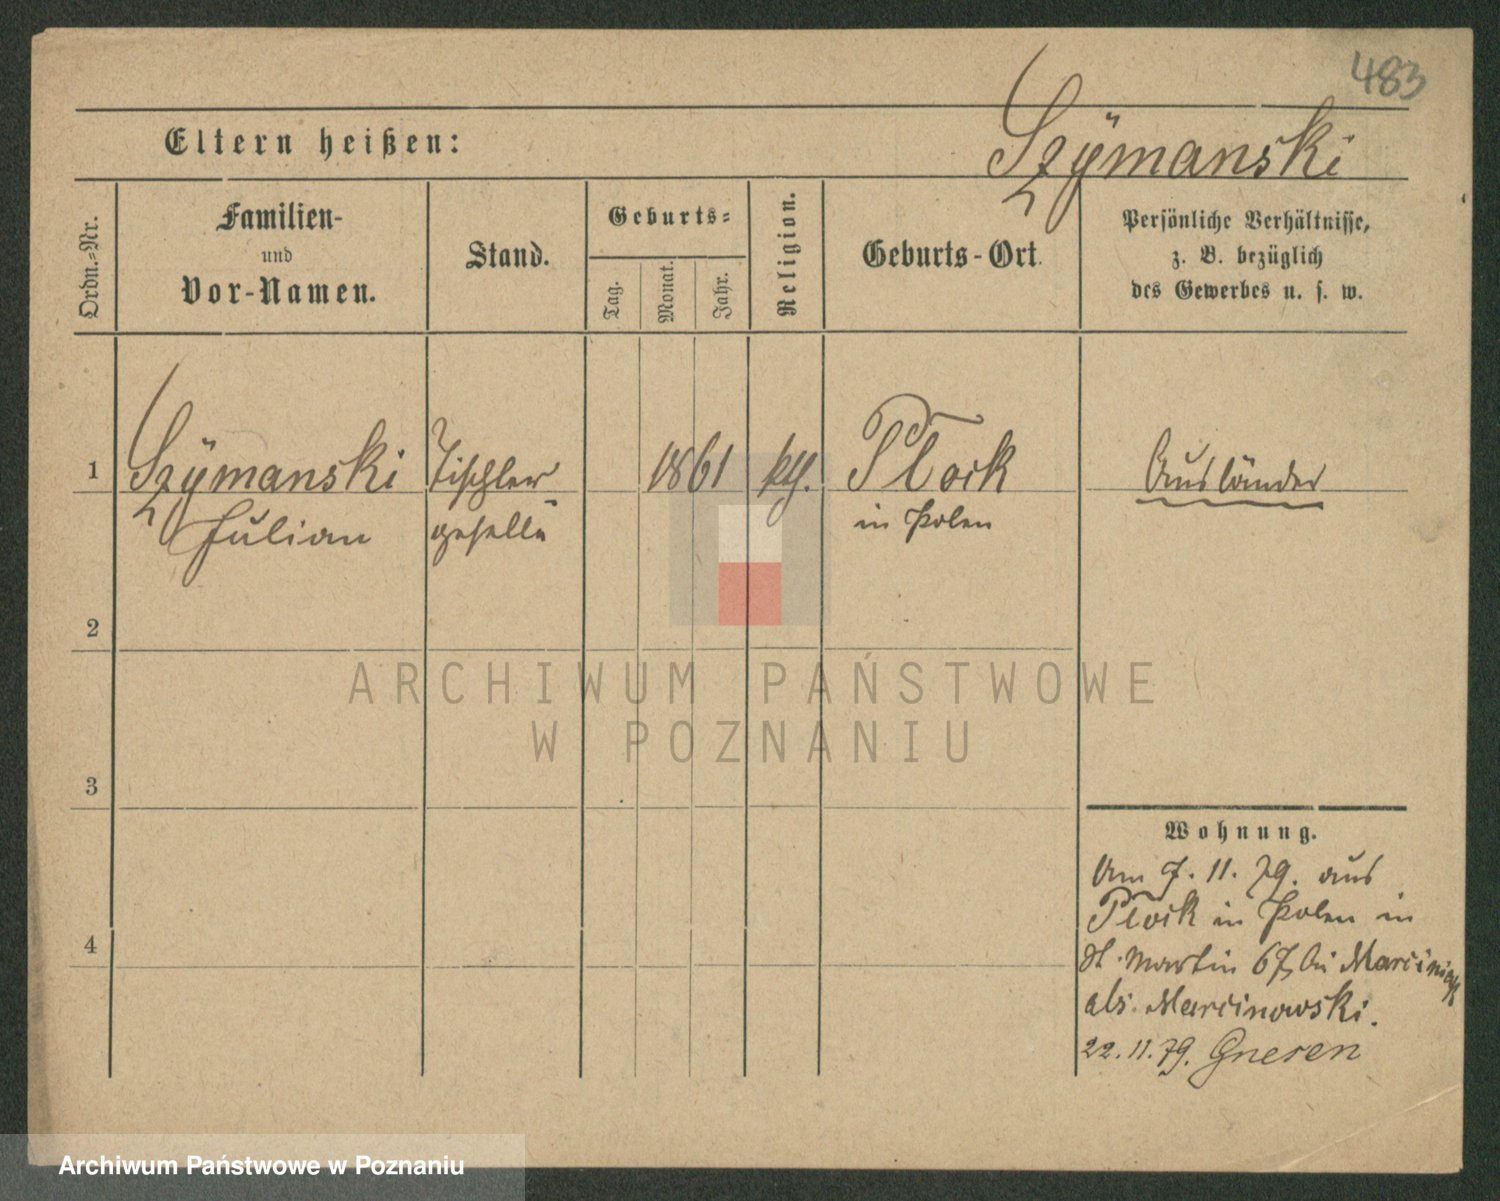 483
Eltern heißen:
Szÿmanski
Ordn.-Nr.
Familien-
und
Vor-Namen.
Stand.
Geburts-
Tag.
Monat.
Jahr.
Religion.
Geburts-Ort.
Persönliche Verhältnisse,
z. B. bezüglich
des Gewerbes u. s. w.
1
Szÿmanski
Julian
Tischler
geselle
1861
kth.
Plock
in Polen
Ausländer
2
3
4
Wohnung.
Am 7. 11. 79. aus
Plock in Polen in
St. Martin 67, bei Marciniak
als. Marcinowski.
22. 11. 79. Gnesen
ARCHIWUM PAŃSTWOWE
W POZNANIU
Archiwum Państwowe w Poznaniu